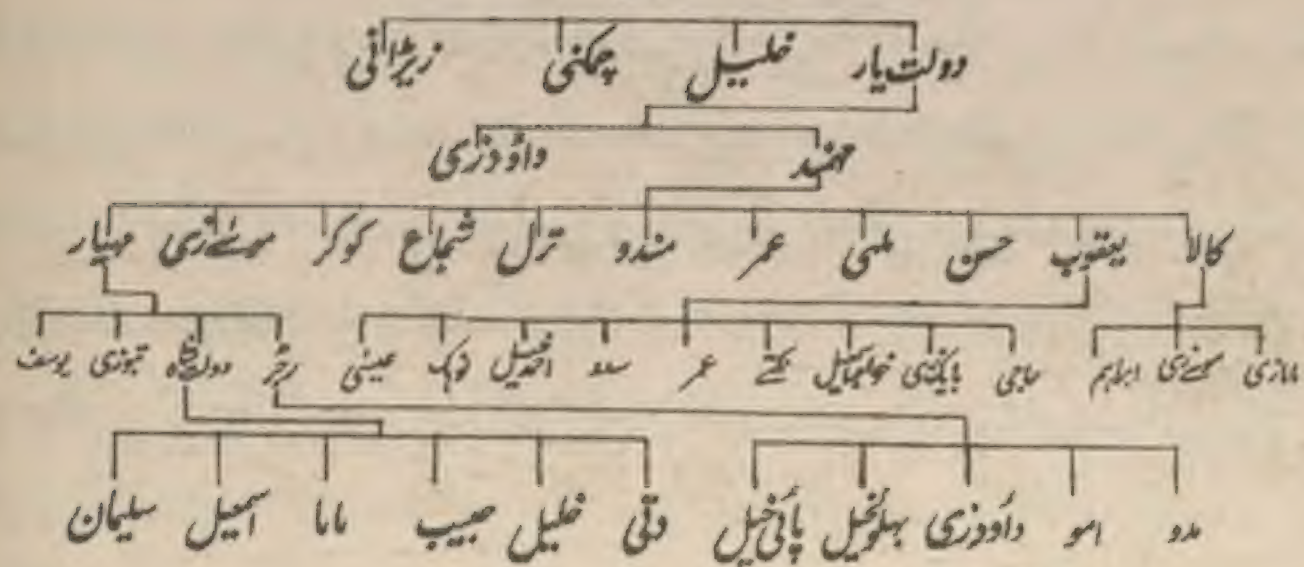 دولت یار خلیل چمکنی زیڑانی
مهمند داؤدزی
کالا یعقوب حسن ملمی عمر مندو ترل شجاع کوکر موسےٰزی مہیار
مامازی موسےٰزی ابراہیم حاجی بایکزی خواجہ خیل تکتے عمر سدو احمدخیل ٹوبک عیسیٰ رنجڑ دولت شاہ تبوزی یوسف
مدو امو داؤدزی بہلولخیل پائی خیل وتی خلیل حبیب ماما اسمعیل سلیمان